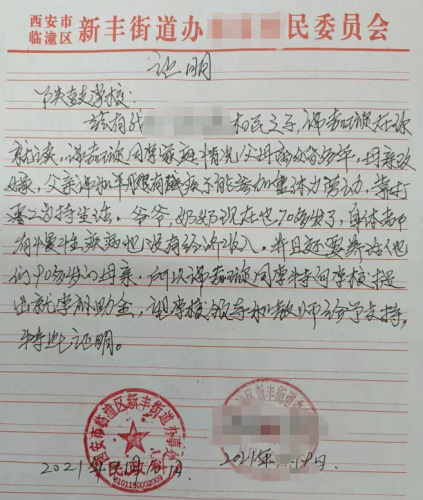 西安市
临潼区 新丰街道办 民委员会
证明
铁鼓学校:
兹有我 村民之子,谭嘉琪在你
就读,谭嘉琪同学家庭情况父母离婚多年,母亲改
嫁,父亲 患有疾病不能参加重体力劳动,靠打
零工维持生活。爷爷,奶奶现在也70多岁了,身体都
有慢性疾病也没有经济收入。并且还要养活他
们90多岁的母亲。所以谭嘉琪同学特向学校提
出就学补助金,望学校领导和教师给予支持,
特此证明。
西安市临潼区新丰街道办事处
6101150002009
区新丰街道办
2021年 月 日
2021年 月 日